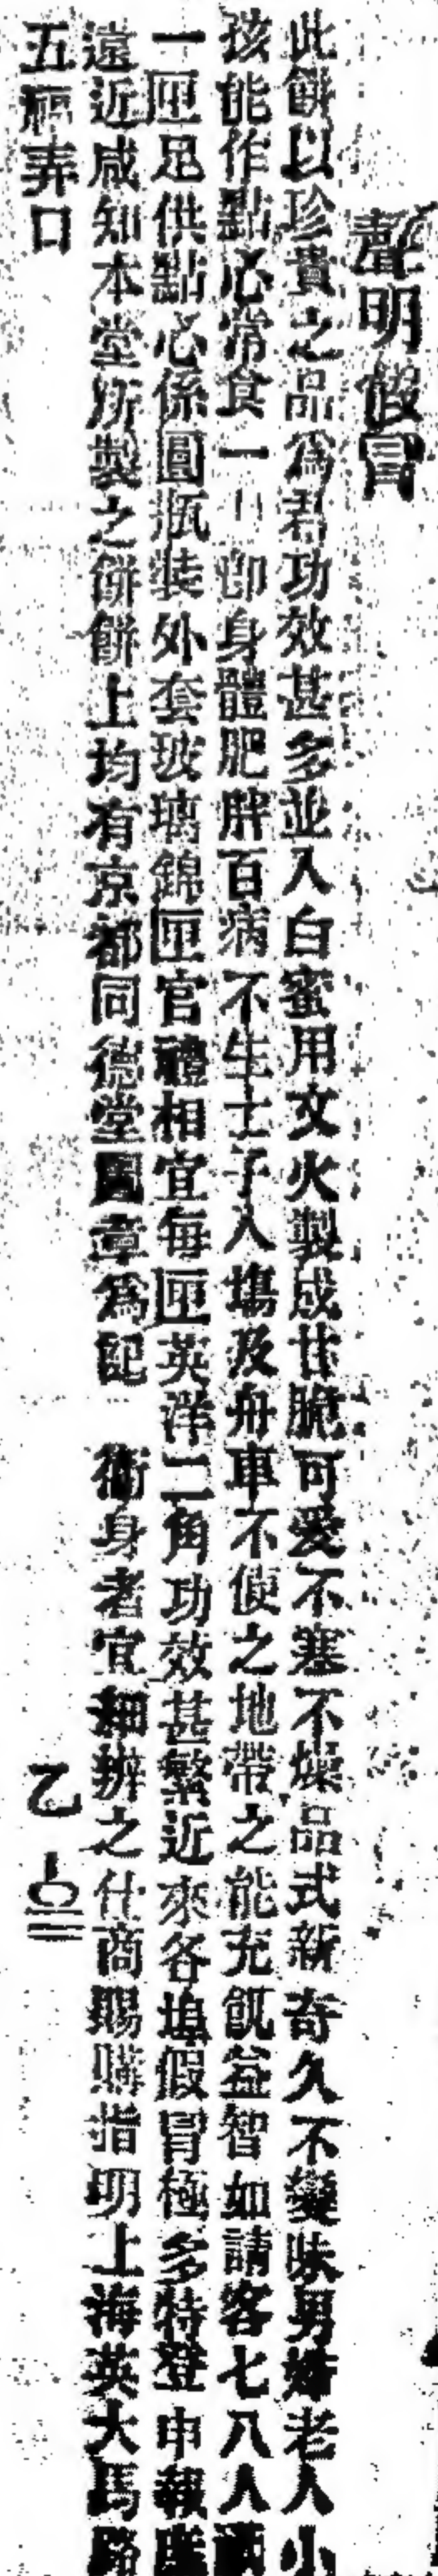 聲明假冒
此餅以珍貴之品為君功效甚多並入白蜜用文火製成甘脆可愛不塞不燥品式新奇久不變味男婦老人小
孩能作點心常食一 卽身體肥胖百病不生士子入塲及舟車不便之地帶之能充飢益智如請客七八人
一匣足供點心係圓瓶裝外套玻璃錦匣官禮相宜每匣英洋二角功效甚繁近來各埠假冒極多特登申報
遠近咸知本堂所製之餅餅上均有京都同德堂圖章為記 衛身者宜細辨之仕商賜購指明上海英大馬路
五福弄口 乙